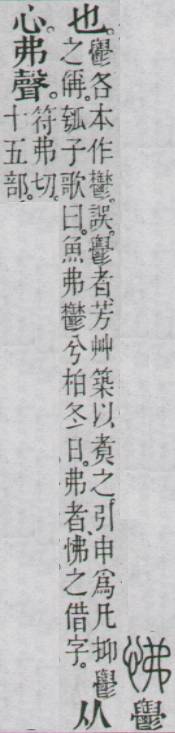 怫𩰪
也。
𩰪各本作鬱。誤。𩰪者、芳艸築以煑之。引申爲凡抑𩰪
之偁。瓠子歌曰。魚弗鬱兮柏冬日。弗者、怫之借字。
从
心。弗聲。
符弗切。
十五部。